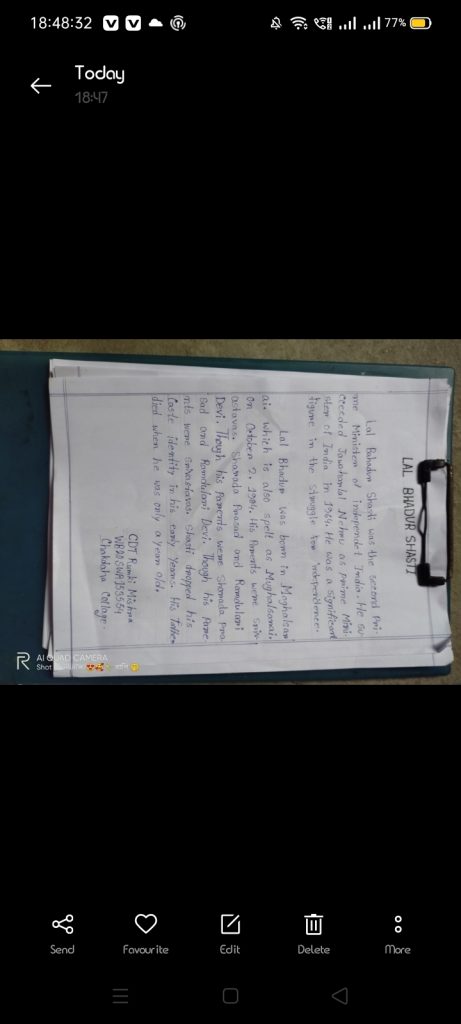 18:48:32
77%
Today
18:47
LAL BHADUR SHASTI
Lal Bahadur Shasti was the second Pri-
me Minister of independet India. He su-
cceeded Jawaharlal Nehru as prime Mini-
ster of India in 1964. He was a significant
figure in the struggle for independence.
Lal Bhadur was born in Moghalsar-
ai. Which is also spelt as Mughalsarai.
on October 2, 1904. His Parents were Sriv-
astavas. Sharada Prasad and Ramdulari
Devi. Though his parents were Sharada Pra-
sad and Ramdulari Devi. Though his Pare-
nts were srivastavas. Shasti dropped his
Caste identity in his early years. His father
died when he was only a year old.
CDT Rumki Mishra
WB20SWA153554
Chakdaha Collage.
AI QUAD CAMERA
Shot
Send
Favourite
Edit
Delete
More